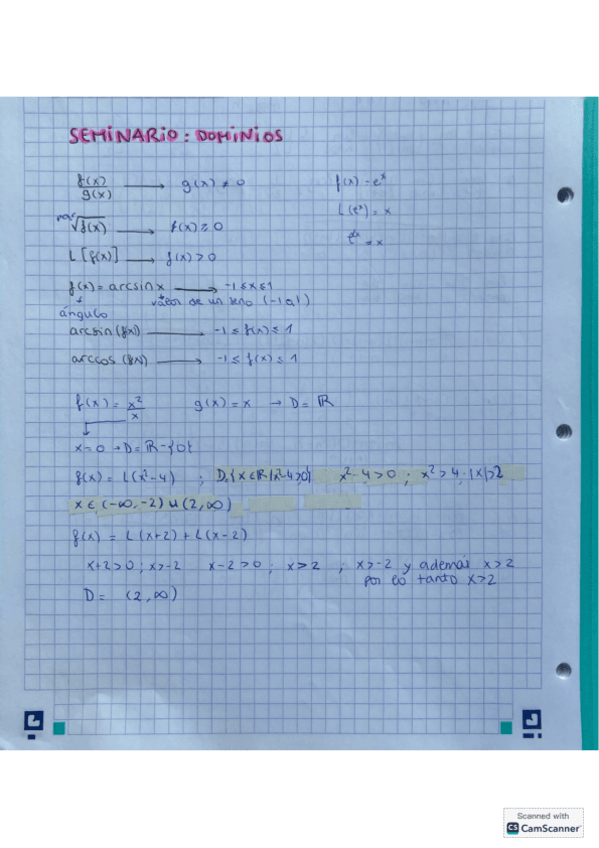 SEMINARIO: DOMINIOS
f(x)/g(x) → g(x) ≠ 0
f(x) = eˣ
par√f(x) → f(x) ≥ 0
L(eˣ) = x
L[f(x)] → f(x) > 0
= x
f(x) = arcsin x → -1 ≤ x ≤ 1
ángulo
valor de un seno (-1 a 1)
arcsin (f(x)) → -1 ≤ f(x) ≤ 1
arccos (f(x)) → -1 ≤ f(x) ≤ 1
f(x) = x²/x g(x) = x → D = ℝ
x = 0 → D = ℝ - {0}
f(x) = L(x²-4) ; D{x ∈ ℝ / x²-4>0} x²-4>0 ; x²>4 · |x|>2
x ∈ (-∞, -2) ∪ (2, ∞)
f(x) = L(x+2) + L(x-2)
x+2>0 ; x>-2 x-2>0 ; x>2 ; x>-2 y además x>2
por lo tanto x>2
D = (2, ∞)
Scanned with
CS CamScanner